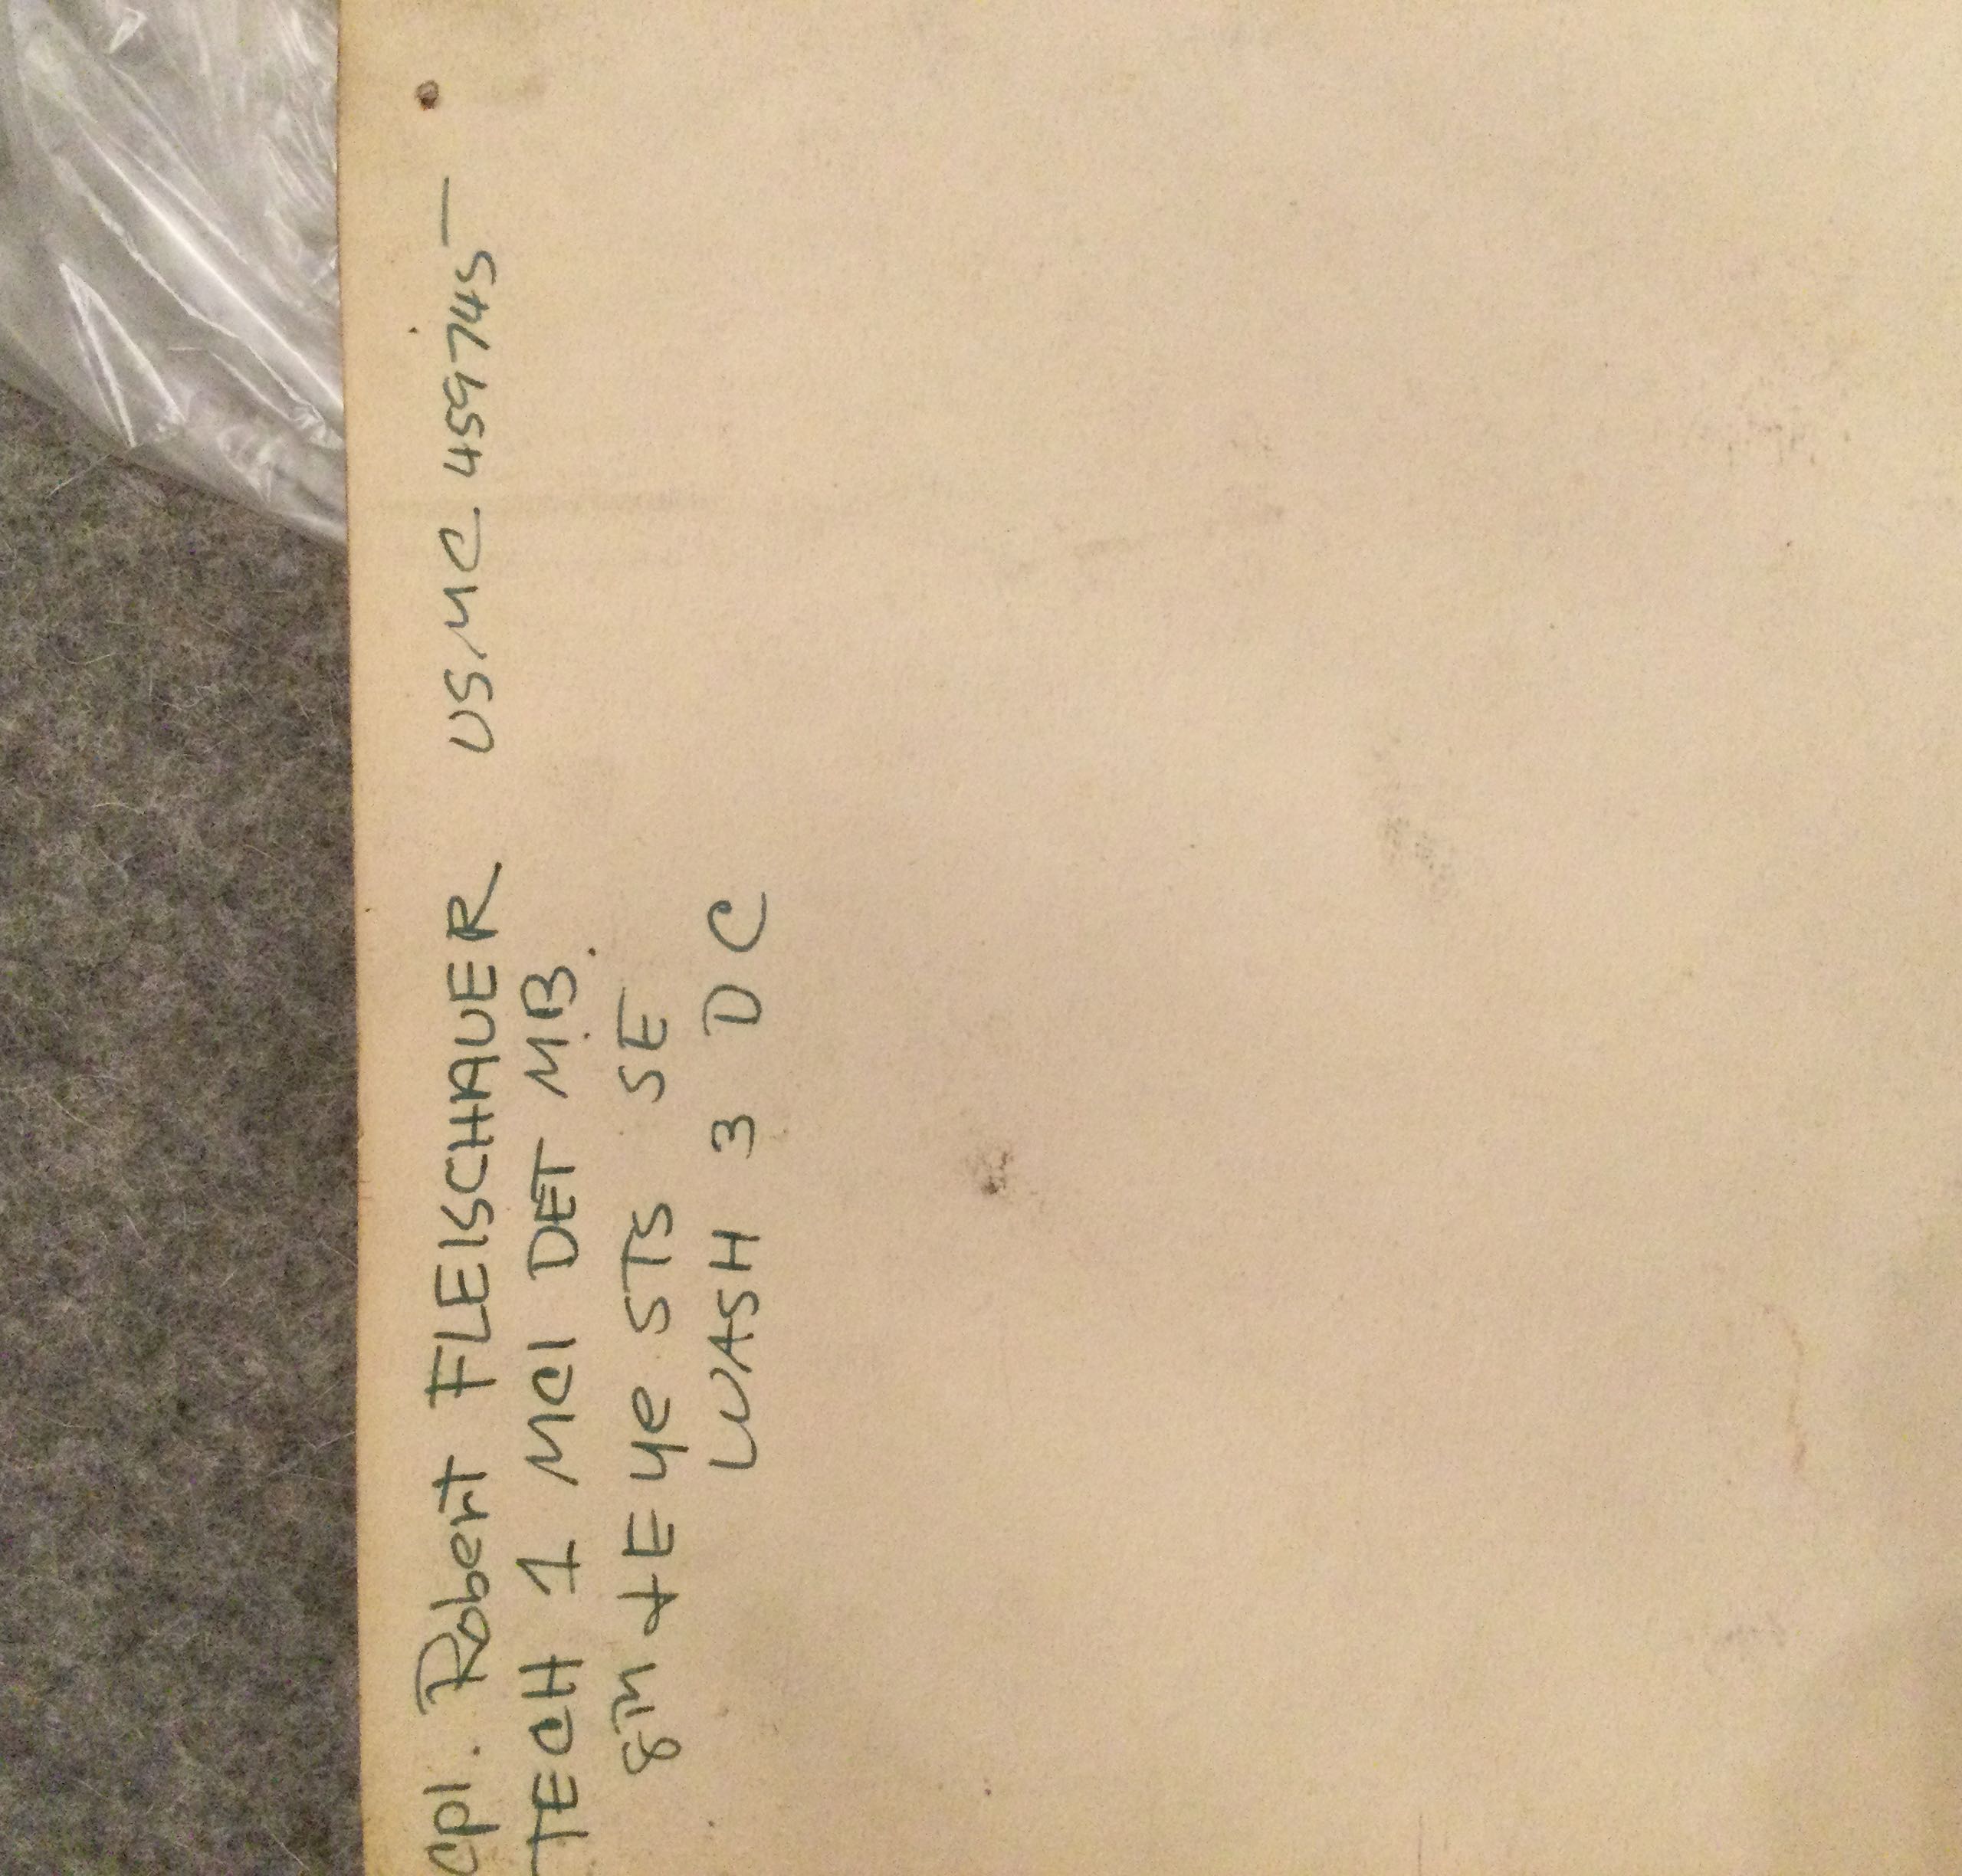 Cpl. Robert FLEISCHAUER USMC 459745 —
TECH 1 MCI DET MB.
8TH + EYE STS SE
WASH 3 DC